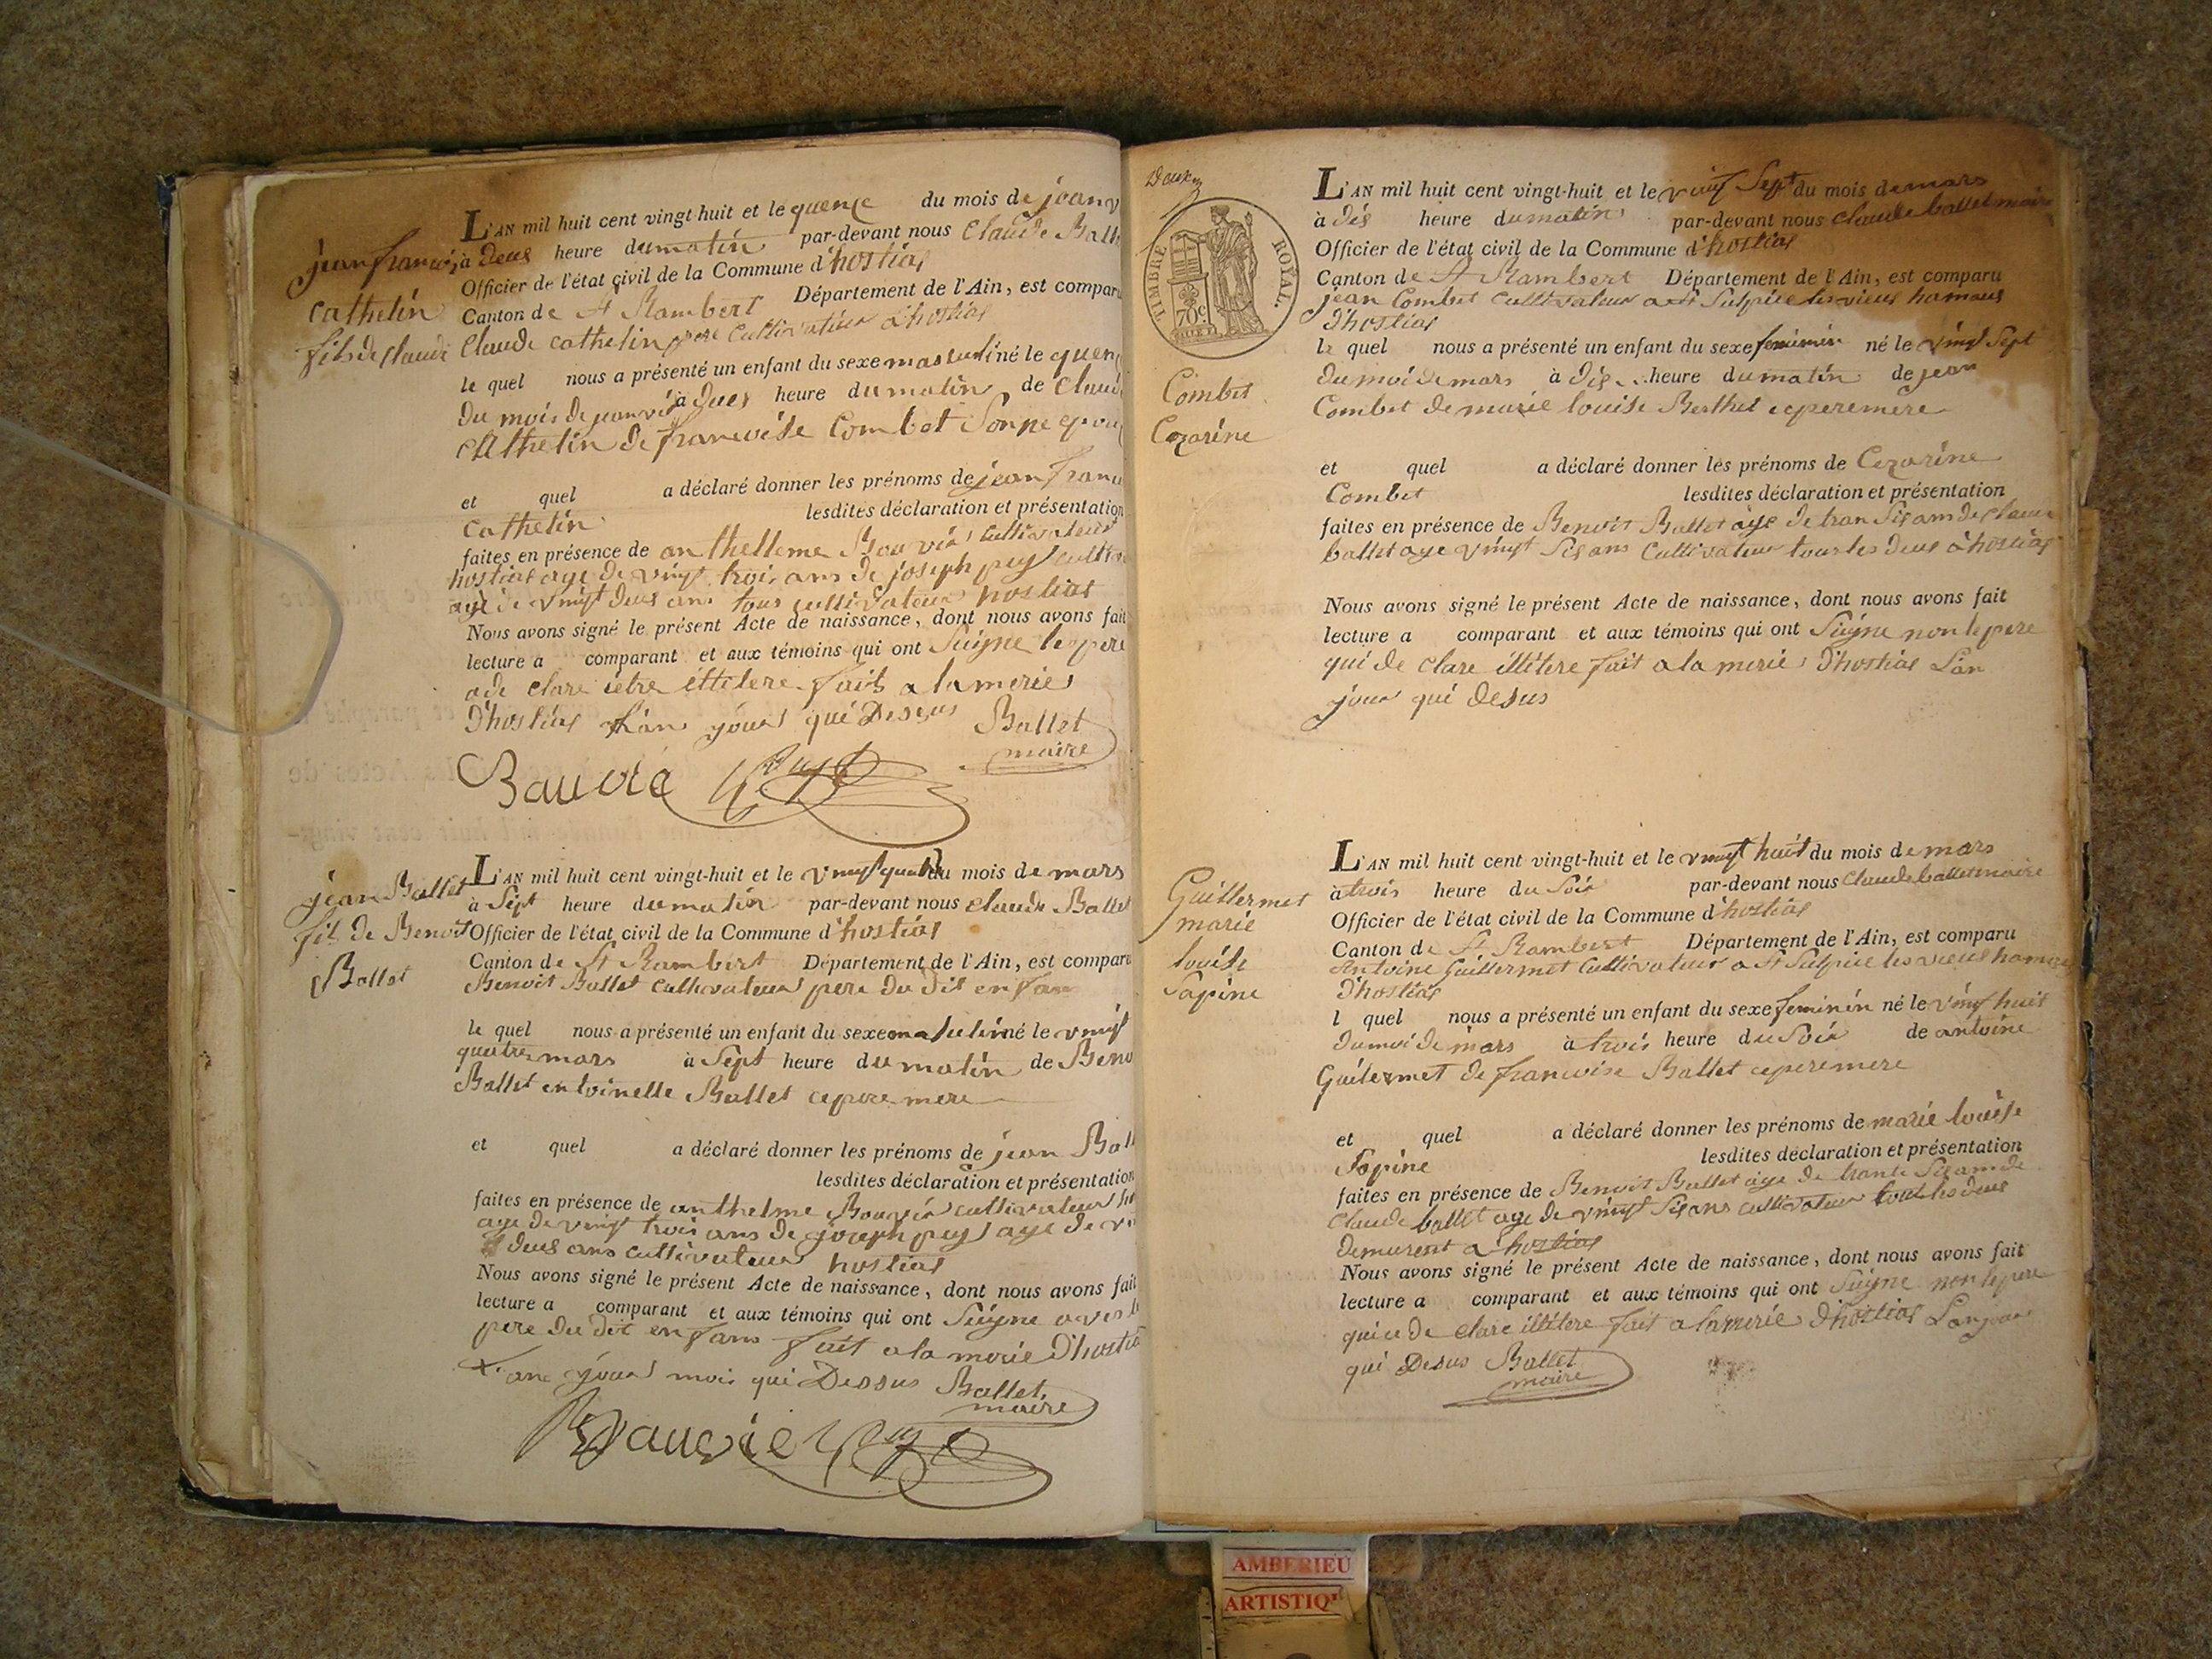 jean francois
cathelin
fils de claude
L'AN mil huit cent vingt-huit et le quenze du mois de jeanv
à deus heure du matin par-devant nous Claude Ball
Officier de l'état civil de la Commune d'hostias
Canton de St Rambert Département de l'Ain, est comparu
Claude cathelin pere cultivateur a hostias
le quel nous a présenté un enfant du sexe masculin né le quen
du mois de janvié à dues heure du matin de Claud
cathelin de francoise Combet
et quel a déclaré donner les prénoms de jean franc
cathelin lesdites déclaration et présentation
faites en présence de anthelleme Bouvié cultivateur
hostias age de vingt trois ans de joseph pey cultiv
agé de vingt deus ans tous cultivateur hostias
Nous avons signé le présent Acte de naissance, dont nous avons fait
lecture a comparant et aux témoins qui ont Suigne le pere
a de clare ietre illitere fait a la merie
D'hostias Lan jour qui Desçus Ballet
maire
Bauvié
jean Ballet
fil de Benoit
Ballet
L'AN mil huit cent vingt-huit et le vingt quatre du mois de mars
à Sept heure du matin par-devant nous claude Ballet
Officier de l'état civil de la Commune d'hostias
Canton de St Rambert Département de l'Ain, est comparu
Benoit Ballet cultivateur pere du dit enfans
le quel nous a présenté un enfant du sexe masculin né le vingt
quatre mars à Sept heure du matin de Beno
Ballet entoinette Ballet ce pere mere
et quel a déclaré donner les prénoms de jean Ball
lesdites déclaration et présentation
faites en présence de anthelme Bouvié cultivateur
age de vingt trois ans de joseph pey age de v
deus ans cultivateur hostias
Nous avons signé le présent Acte de naissance, dont nous avons fait
lecture a comparant et aux témoins qui ont Suigne aves le
pere du dit enfans fait a la merie D'hostia
L'ane jour mois qui Dessus Ballet
maire
Bauvie
Deux
TIMBRE ROYAL.
70c
Combet
Cezarine
L'AN mil huit cent vingt-huit et le vingt Sept du mois de mars
à dis heure du matin par-devant nous claude ballet maire
Officier de l'état civil de la Commune d'hostias
Canton de St Rambert Département de l'Ain, est comparu
jean Combet cultivateur a St Sulpice les vieus hamaus
D'hostias
le quel nous a présenté un enfant du sexe feminin né le vingt Sept
du moi de mars à dis heure du matin de jean
Combet de marie louise Berthet ce pere mere
et quel a déclaré donner les prénoms de Cezarine
Combet lesdites déclaration et présentation
faites en présence de Benoit Ballet age de tran Sis ans de claude
ballet age vingt Sis ans cultivateur tous les deus a hostias
Nous avons signé le présent Acte de naissance, dont nous avons fait
lecture a comparant et aux témoins qui ont Suigne non le pere
qui de clare illitere fait a la merie D'hostias Lan
jour qui desus
Guillermet
marie
louise
Sapine
L'AN mil huit cent vingt-huit et le vingt huit du mois de mars
à trois heure du Soir par-devant nous claude ballet maire
Officier de l'état civil de la Commune d'hostias
Canton de St Rambert Département de l'Ain, est comparu
Antoine Guillermet cultivateur a St Sulpice les vieus hamaus
D'hostias
l quel nous a présenté un enfant du sexe feminin né le vingt huit
du moi de mars à trois heure du Soir de antoine
Guilermet de francoise Ballet ce pere mere
et quel a déclaré donner les prénoms de marie louise
Sapine lesdites déclaration et présentation
faites en présence de Benoit Ballet age de trante Sis ans de
claude ballet age de vingt Sis ans cultivateur tout les deus
demurent a hostias
Nous avons signé le présent Acte de naissance, dont nous avons fait
lecture a comparant et aux témoins qui ont Suigne non le pere
qui a de clare illitere fait a la merie D'hostias Lan jour
qui Desus Ballet
maire
AMBERIEU
ARTISTIQ